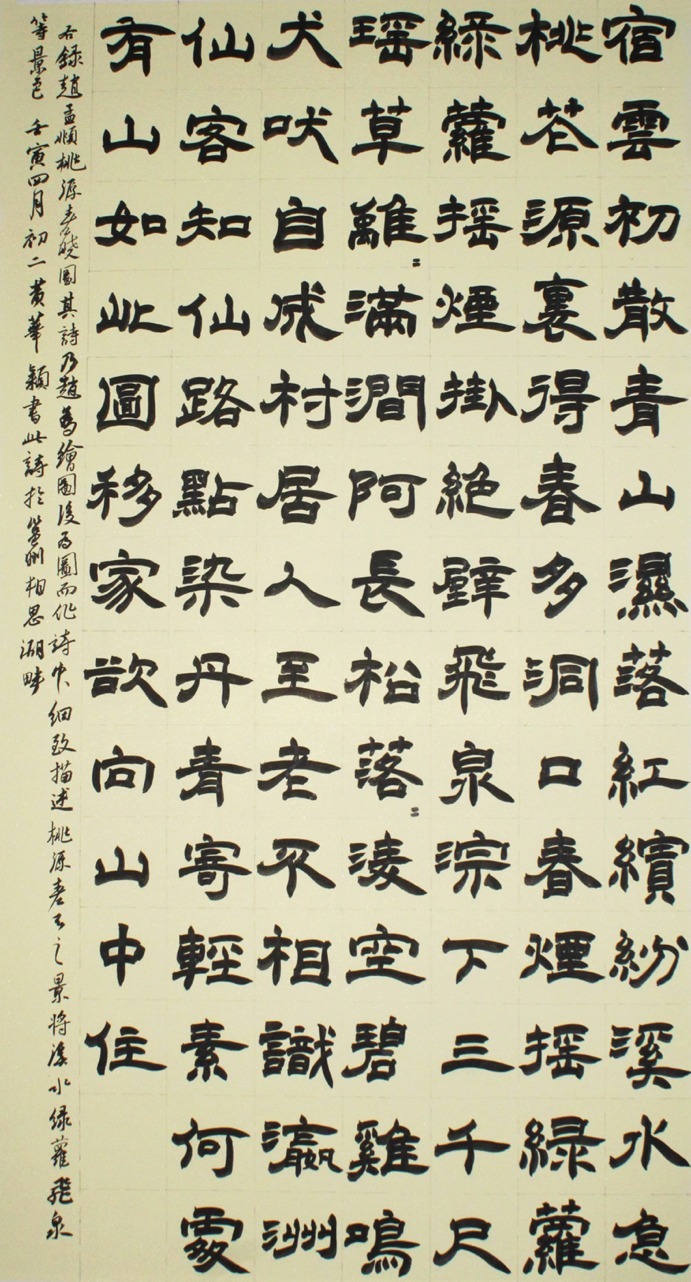 宿雲初散青山濕落紅繽紛溪水急
桃花源裏得春多洞口春煙摇緑蘿
緑蘿摇煙掛絶壁飛泉淙下三千尺
瑶草離〻滿澗阿長松落〻凌空碧雞鳴
犬吠自成村居人至老不相識瀛洲
仙客知仙路點染丹青寄輕素何處
有山如此圖移家欲向山中住
右錄趙孟頫桃源春曉圖其詩乃趙繪圖後為圖而作詩中細致描述桃源春天之景將溪水緑蘿飛泉
等景色 壬寅四月初二黄華穎書此詩於邕州相思湖畔